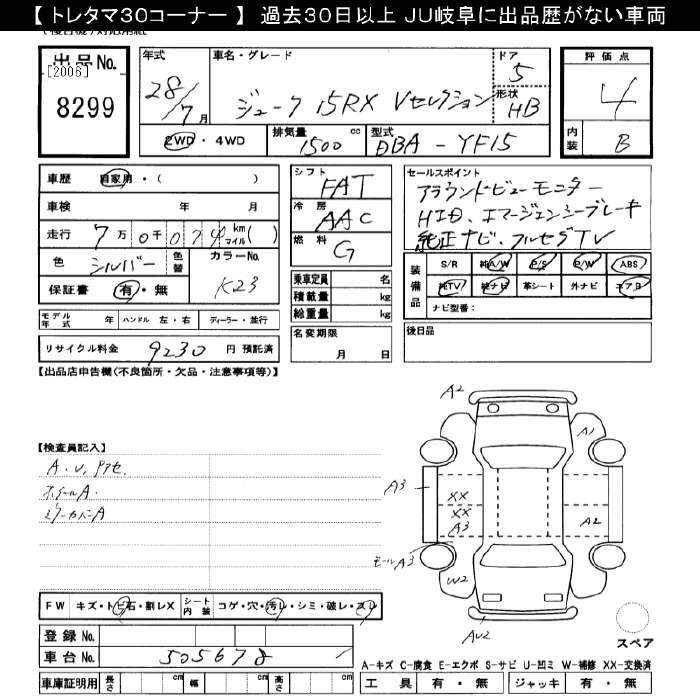 【 トレタマ30コーナー 】 過去30日以上 JU岐阜に出品歴がない車両
出品No.
[2006]
8299
年式
28/7月
車名・グレード
ジューク 15RX Vセレクション
ドア
5
形状
HB
2WD・4WD
排気量
1500 cc
型式
DBA-YF15
評価点
4
内装
B
車歴 自家用・( )
車検 年 月
走行 7万0千074 km マイル( )
色 シルバー 色替 カラーNo. K23
保証書 有・無
モデル年式 年 ハンドル 左・右 ディーラー・並行
リサイクル料金 9230 円 預託済
シフト
FAT
冷房
AAC
燃料
G
乗車定員 名
積載量 kg
総重量 kg
名変期限
月 日
セールスポイント
アラウンドビューモニター
HID、エマージェンシーブレーキ
純正ナビ、フルセグTV
装備品
S/R 純A/W P/S P/W ABS
純TV 純ナビ 革シート 外ナビ エアB
ナビ型番:
後日品
【出品店申告欄(不良箇所・欠品・注意事項等)】
【検査員記入】
A.U,アセ.
ホイールA.
ミラーカバーA
A2
A1
A3
XX
XX
A3
A2
モールA3
W2
AU2
スペア
FW キズ・トビ石・割レX シート内装 コゲ・穴・汚レ・シミ・破レ・スレ
登録No.
車台No. 505678
車庫証明用 長さ cm 幅 cm 高さ cm
A-キズ C-腐食 E-エクボ S-サビ U-凹ミ W-補修 XX-交換済
工具 有・無 ジャッキ 有・無